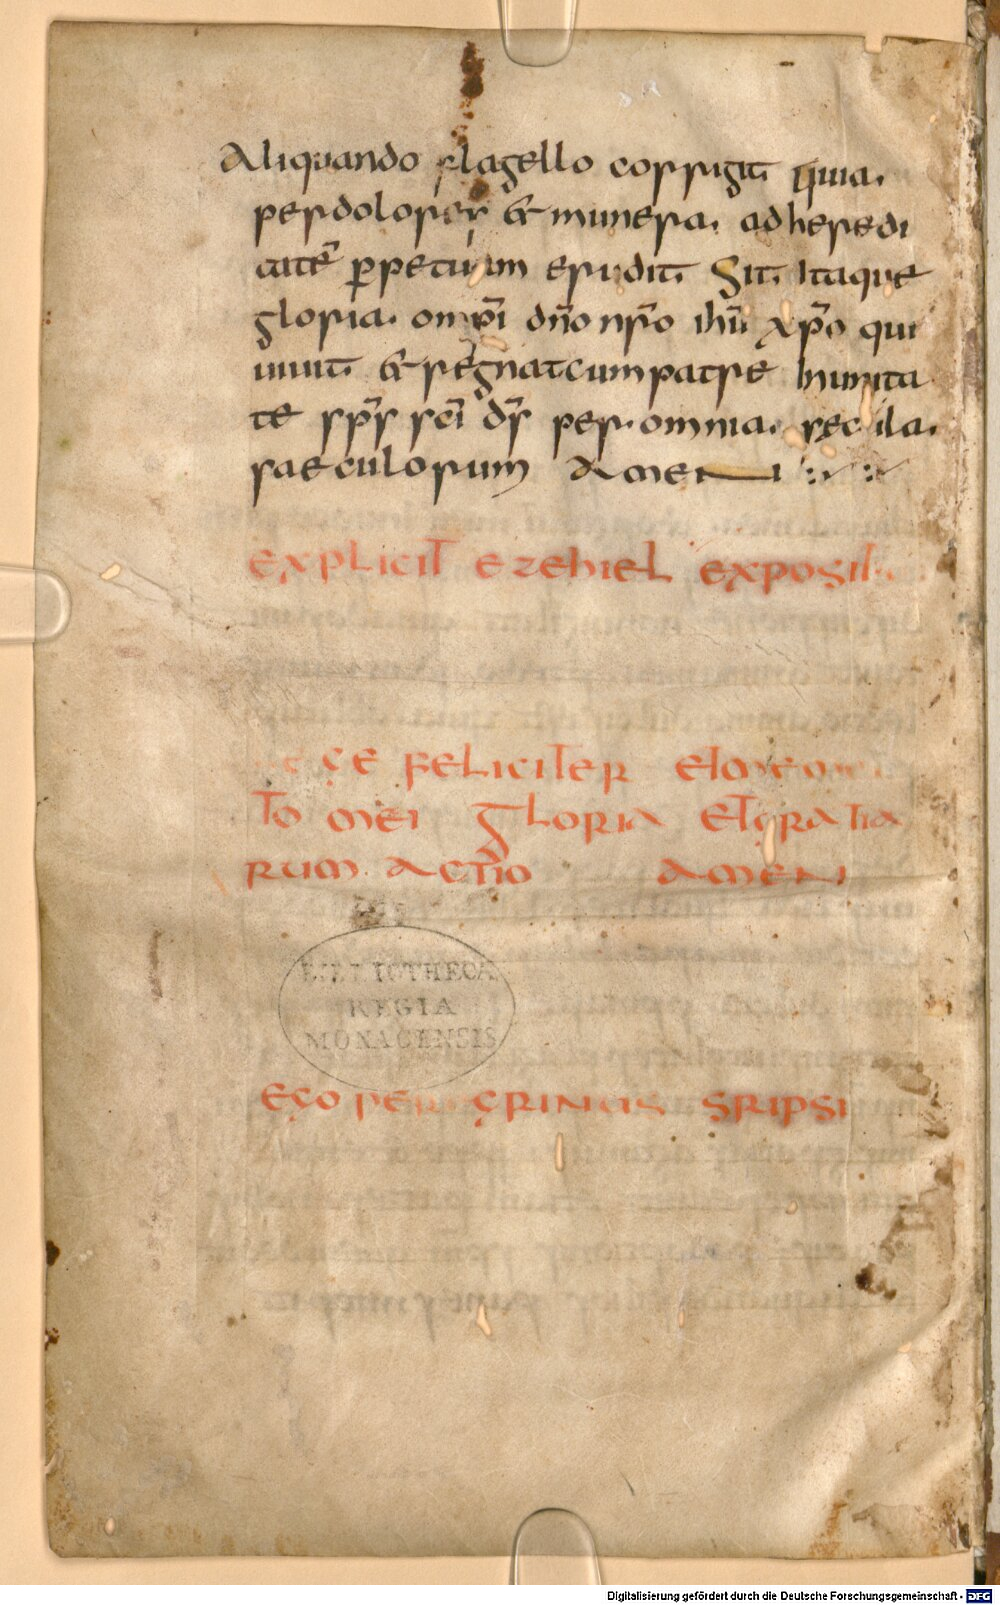 Aliquando flagello corrigit quia.
per dolores & munera. ad heredi
tatē ꝑpetuam erudit. Sit itaque
gloria. omp̄i dn̄o nr̄o ihū xp̄o qui
uiuit & regnat cum patre In unita
te sp̄s sc̄i ds̄ per omnia. secula.
saeculorum AMEN
EXPLICIT EZEHIEL EXPOSIT
FELICITER ET MEMEN
TO MEI GLORIA ET GRATIA
RUM ACTIO AMEN
BIBLIOTHECA
REGIA
MONACENSIS
EGO PEREGRINUS SRIPSI
Digitalisierung gefördert durch die Deutsche Forschungsgemeinschaft - DFG